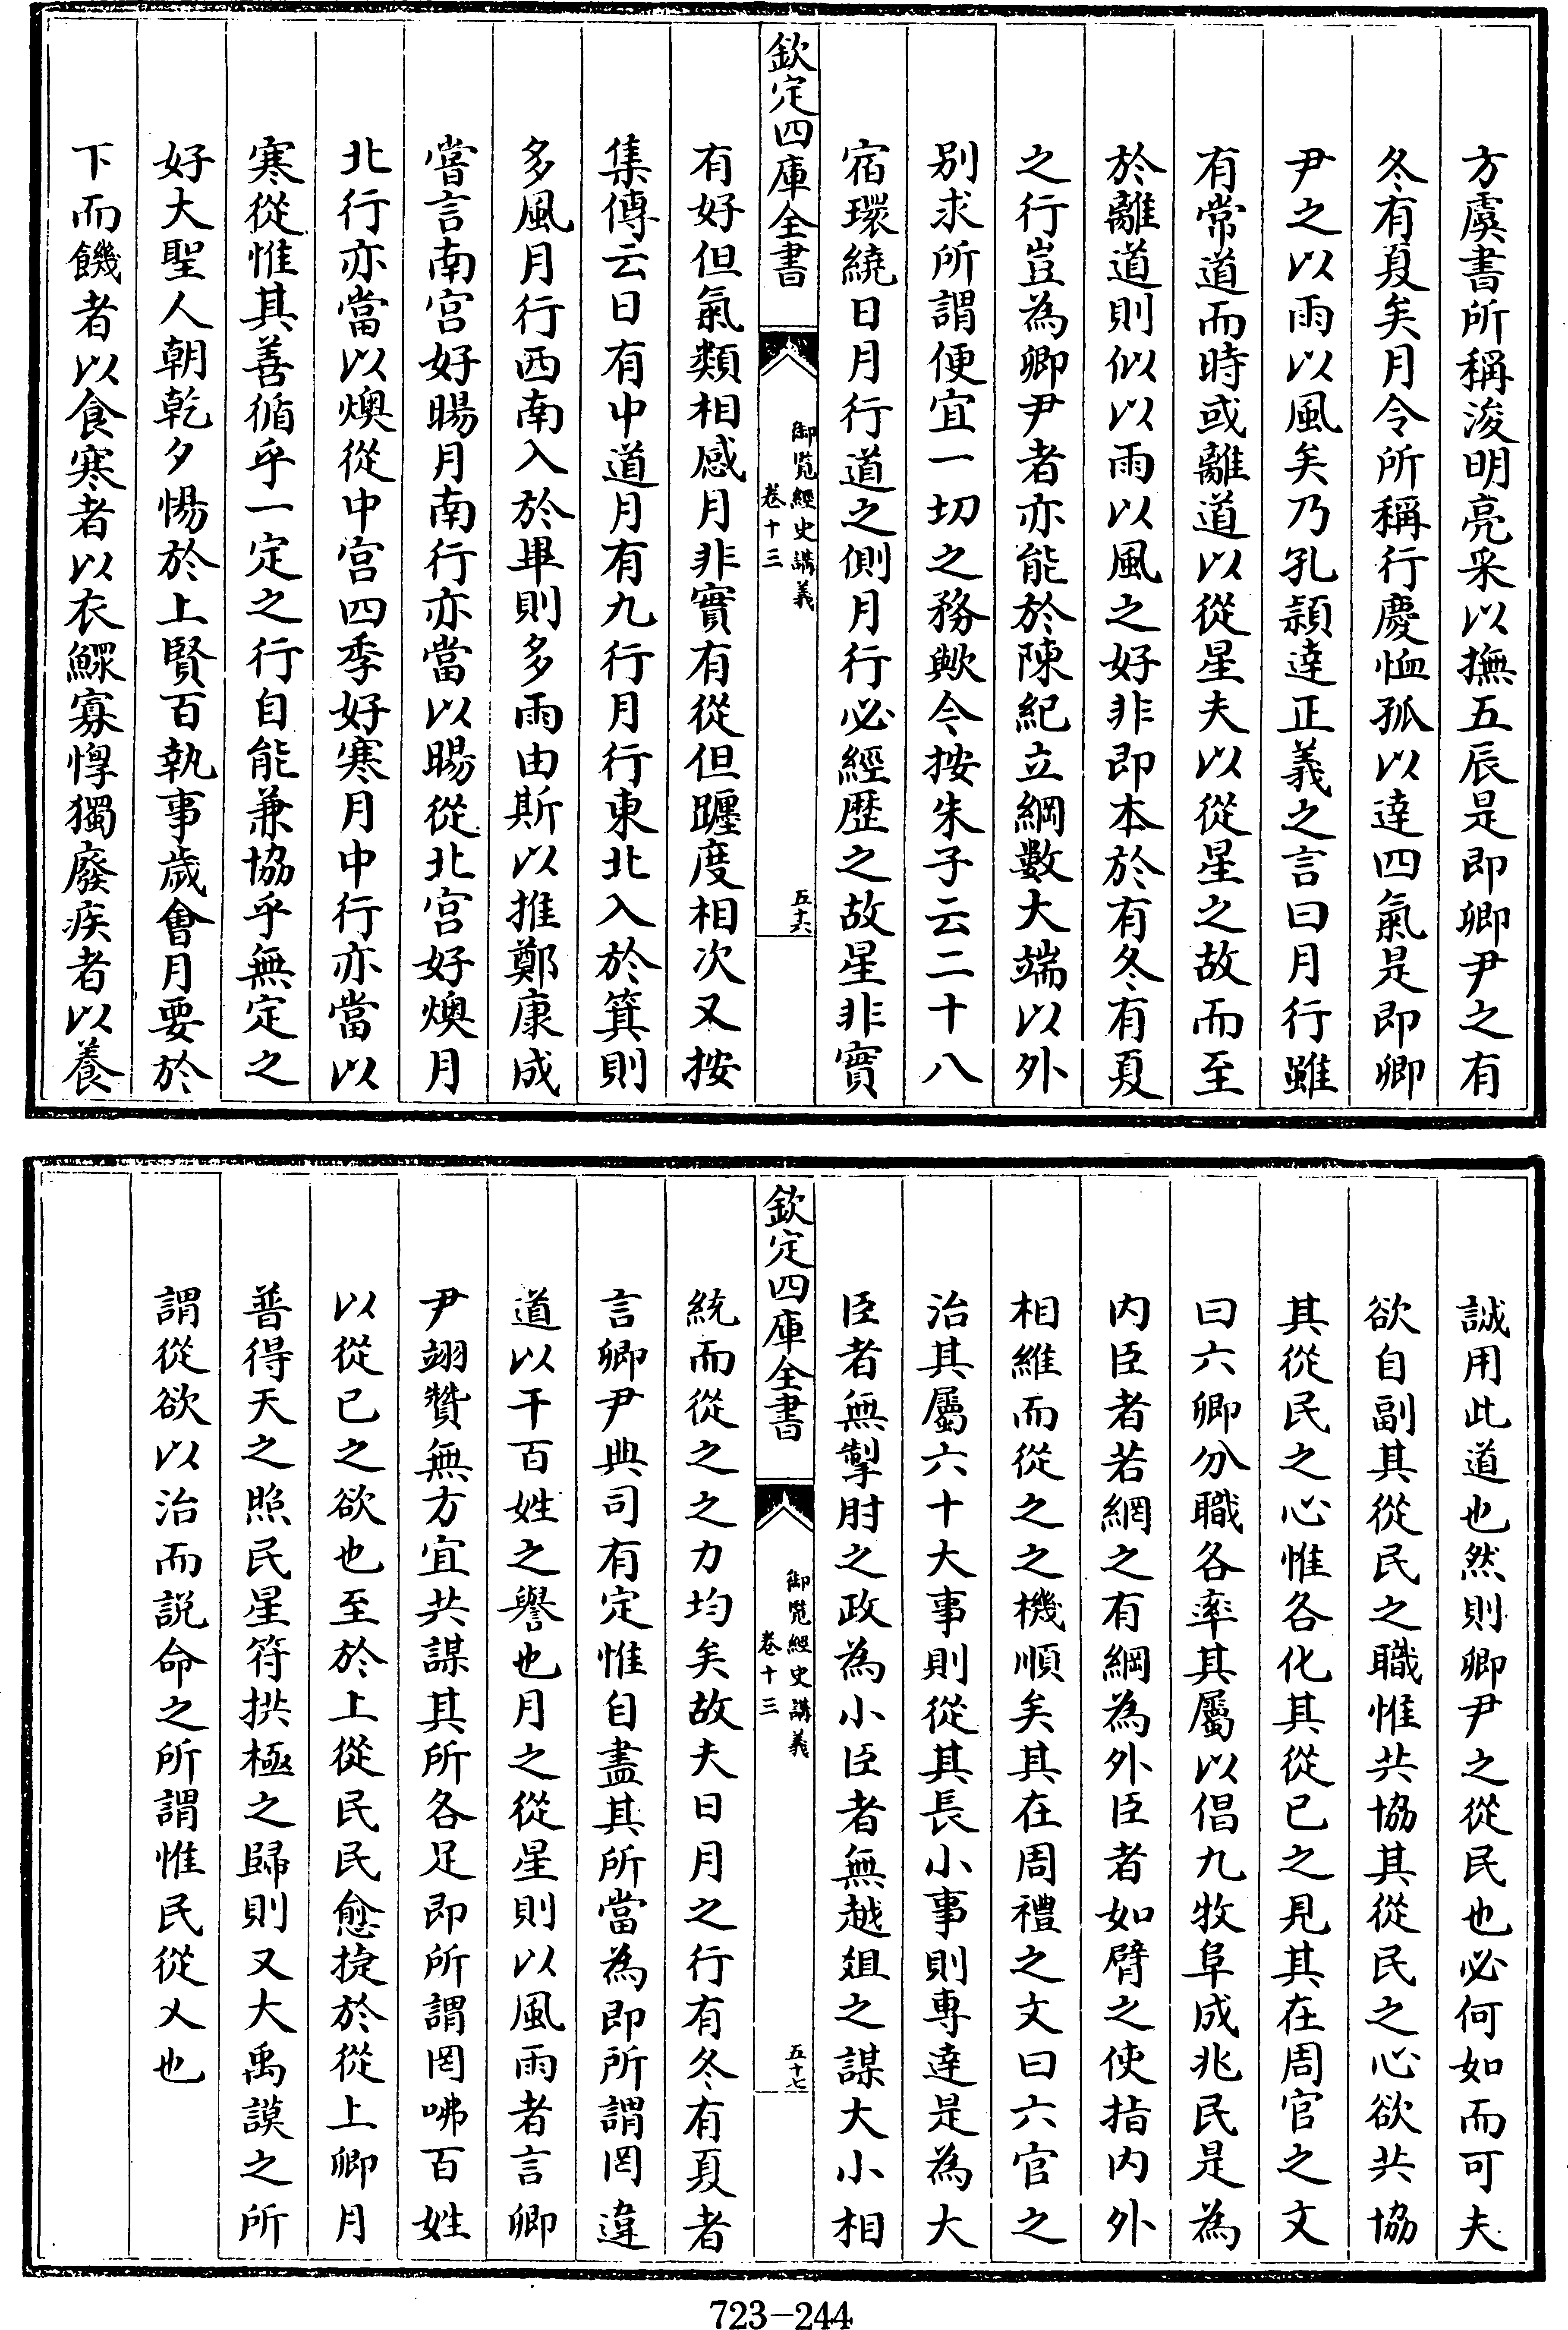 方虞書所稱浚明亮采以撫五辰是即卿尹之有
冬有夏矣月令所稱行慶恤孤以達四氣是即卿
尹之以雨以風矣乃孔頴達正義之言曰月行雖
有常道而時或離道以從星夫以從星之故而至
於離道則似以雨以風之好非即本於有冬有夏
之行豈為卿尹者亦能於陳紀立綱數大端以外
别求所謂便宜一切之務歟今按朱子云二十八
宿環繞日月行道之側月行必經歷之故星非實
欽定四庫全書
御覽經史講義
卷十三
五十六
有好但氣類相感月非實有從但躔度相次又按
集傳云日有中道月有九行月行東北入於箕則
多風月行西南入於畢則多雨由斯以推鄭康成
嘗言南宫好暘月南行亦當以暘從北宫好燠月
北行亦當以燠從中宫四季好寒月中行亦當以
寒從惟其善循乎一定之行自能兼協乎無定之
好大聖人朝乾夕惕於上賢百執事歲會月要於
下而饑者以食寒者以衣鰥寡惸獨廢疾者以養
誠用此道也然則卿尹之從民也必何如而可夫
欲自副其從民之職惟共協其從民之心欲共協
其從民之心惟各化其從已之見其在周官之文
曰六卿分職各率其屬以倡九牧阜成兆民是為
内臣者若網之有綱為外臣者如臂之使指内外
相維而從之之機順矣其在周禮之文曰六官之
治其屬六十大事則從其長小事則專達是為大
臣者無掣肘之政為小臣者無越俎之謀大小相
欽定四庫全書
御覽經史講義
卷十三
五十七
統而從之之力均矣故夫日月之行有冬有夏者
言卿尹典司有定惟自盡其所當為即所謂罔違
道以干百姓之譽也月之從星則以風雨者言卿
尹翊贊無方宜共謀其所各足即所謂罔咈百姓
以從已之欲也至於上從民民愈捷於從上卿月
普得天之照民星符拱極之歸則又大禹謨之所
謂從欲以治而説命之所謂惟民從乂也
723-244